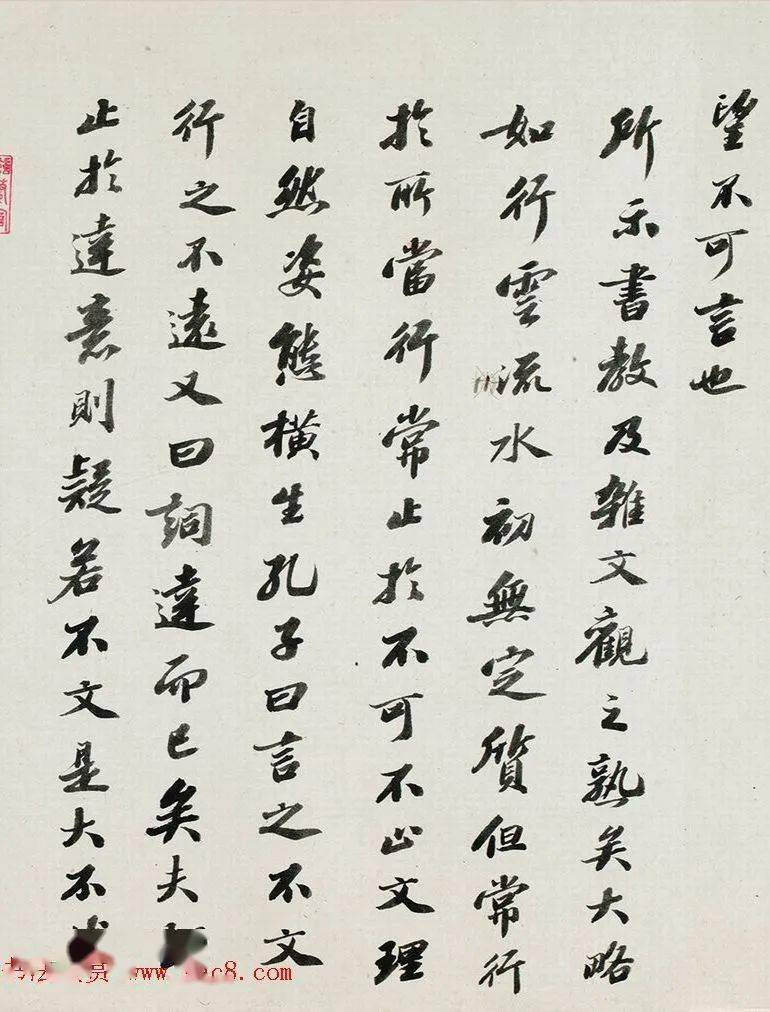 望不可言也
所示書教及雜文觀之熟矣大略
如行雲流水初無定質但常行
於所當行常止於不可不止文理
自然姿態橫生孔子曰言之不文
行之不遠又曰詞達而已矣夫
止於達意則疑若不文是大不